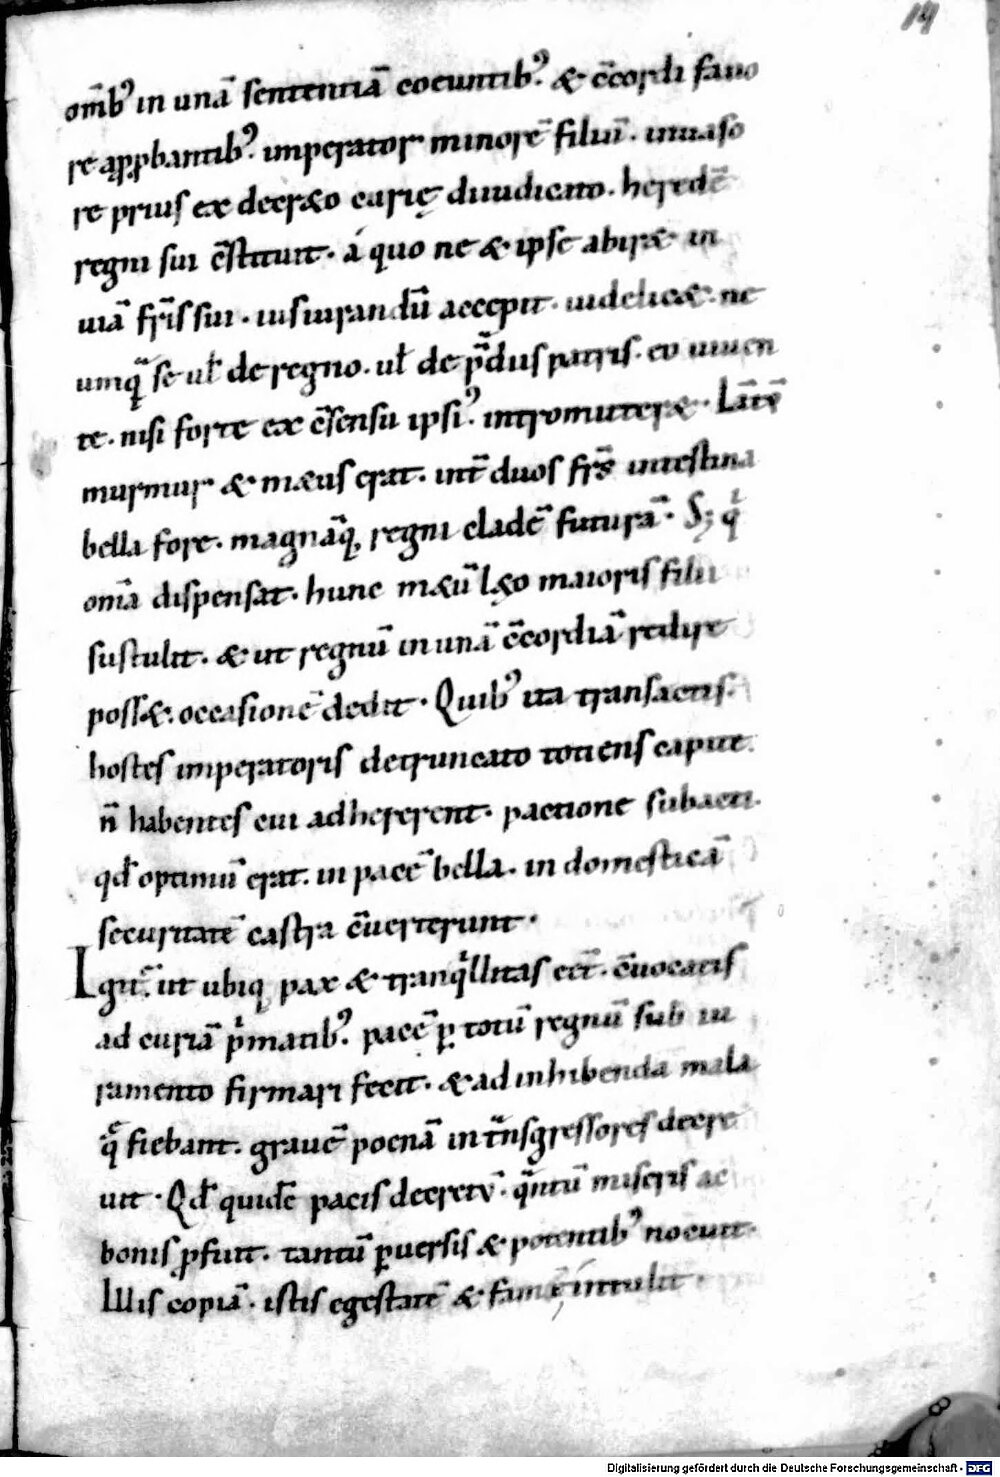 14
om̄bꝰ in unā sententiā coeuntibꝰ. & c̄cordi fauo
re aꝓ̨pbantibꝰ. imperator minorē filiū. inuaso
re prius ex decr&o curię diiudicato. heredē
regni sui c̄stituit. á quo ne & ipse abir& in
uiā fr̄is sui. iusiurandū accepit. uidelic&. ne
umqᷓ se ul̄ de regno. ul̄ de p̄diis patris. eo uiuen
te. nisi forte ex c̄sensu ipsiꝰ intromitter&. Lat̄e
murmur & m&us erat. int̄ duos fr̄s intestina
bella fore. magnāq; regni cladē futurā. S; qͥ
om̄a dispensat. hunc m&ū l&o maioris filii
sustulit. & ut regnū in unā c̄cordiā redire
poss&. occasionē dedit. Quibꝰ ita transactis.
hostes imperatoris detruncato totiens capite.
n̄ habentes cui adhererent. pactione subacti.
qđ optimū erat. in pacē bella. in domesticā
securitatē castra c̄uerterunt.
Igit̄. ut ubiq; pax & tranqͥllitas eēt. c̄uocatis
ad curiā pͥmatibꝰ. pacē ꝑ totū regnū sub iu
ramento firmari fecit. & ad inhibenda mala
q̄ fiebant. grauē poenā in tᷓnsgressores decre
uit. Qđ quidē pacis decretū. qᷓntū miseris ac
bonis ꝓfuit. tantū ꝑuersis & potentibꝰ nocuit.
Illis copiā. istis egestatē & famē intulit.
Digitalisierung gefördert durch die Deutsche Forschungsgemeinschaft - DFG